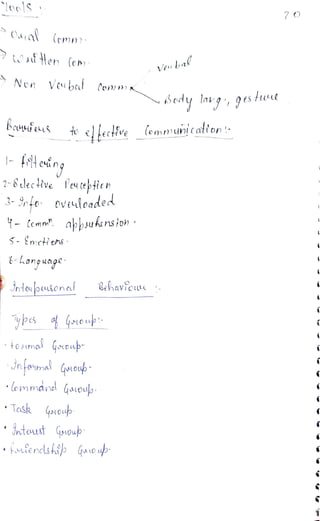 Tools :-
20
→ Oral Comm.
→ Written Com.
→ Non Verbal Comm.
Verbal
Body lang., gesture
Barriers to effective Communication :-
1- filtering
2- Selective Perception
3- Info- overloaded
4- Commn. apprehension.
5- Emotions.
6- Language.
Interpersonal Behaviour :-
Types of Group:-
· formal Group-
· Informal Group-
· Command Group.
· Task Group
· Interest Group.
· friendship Group.